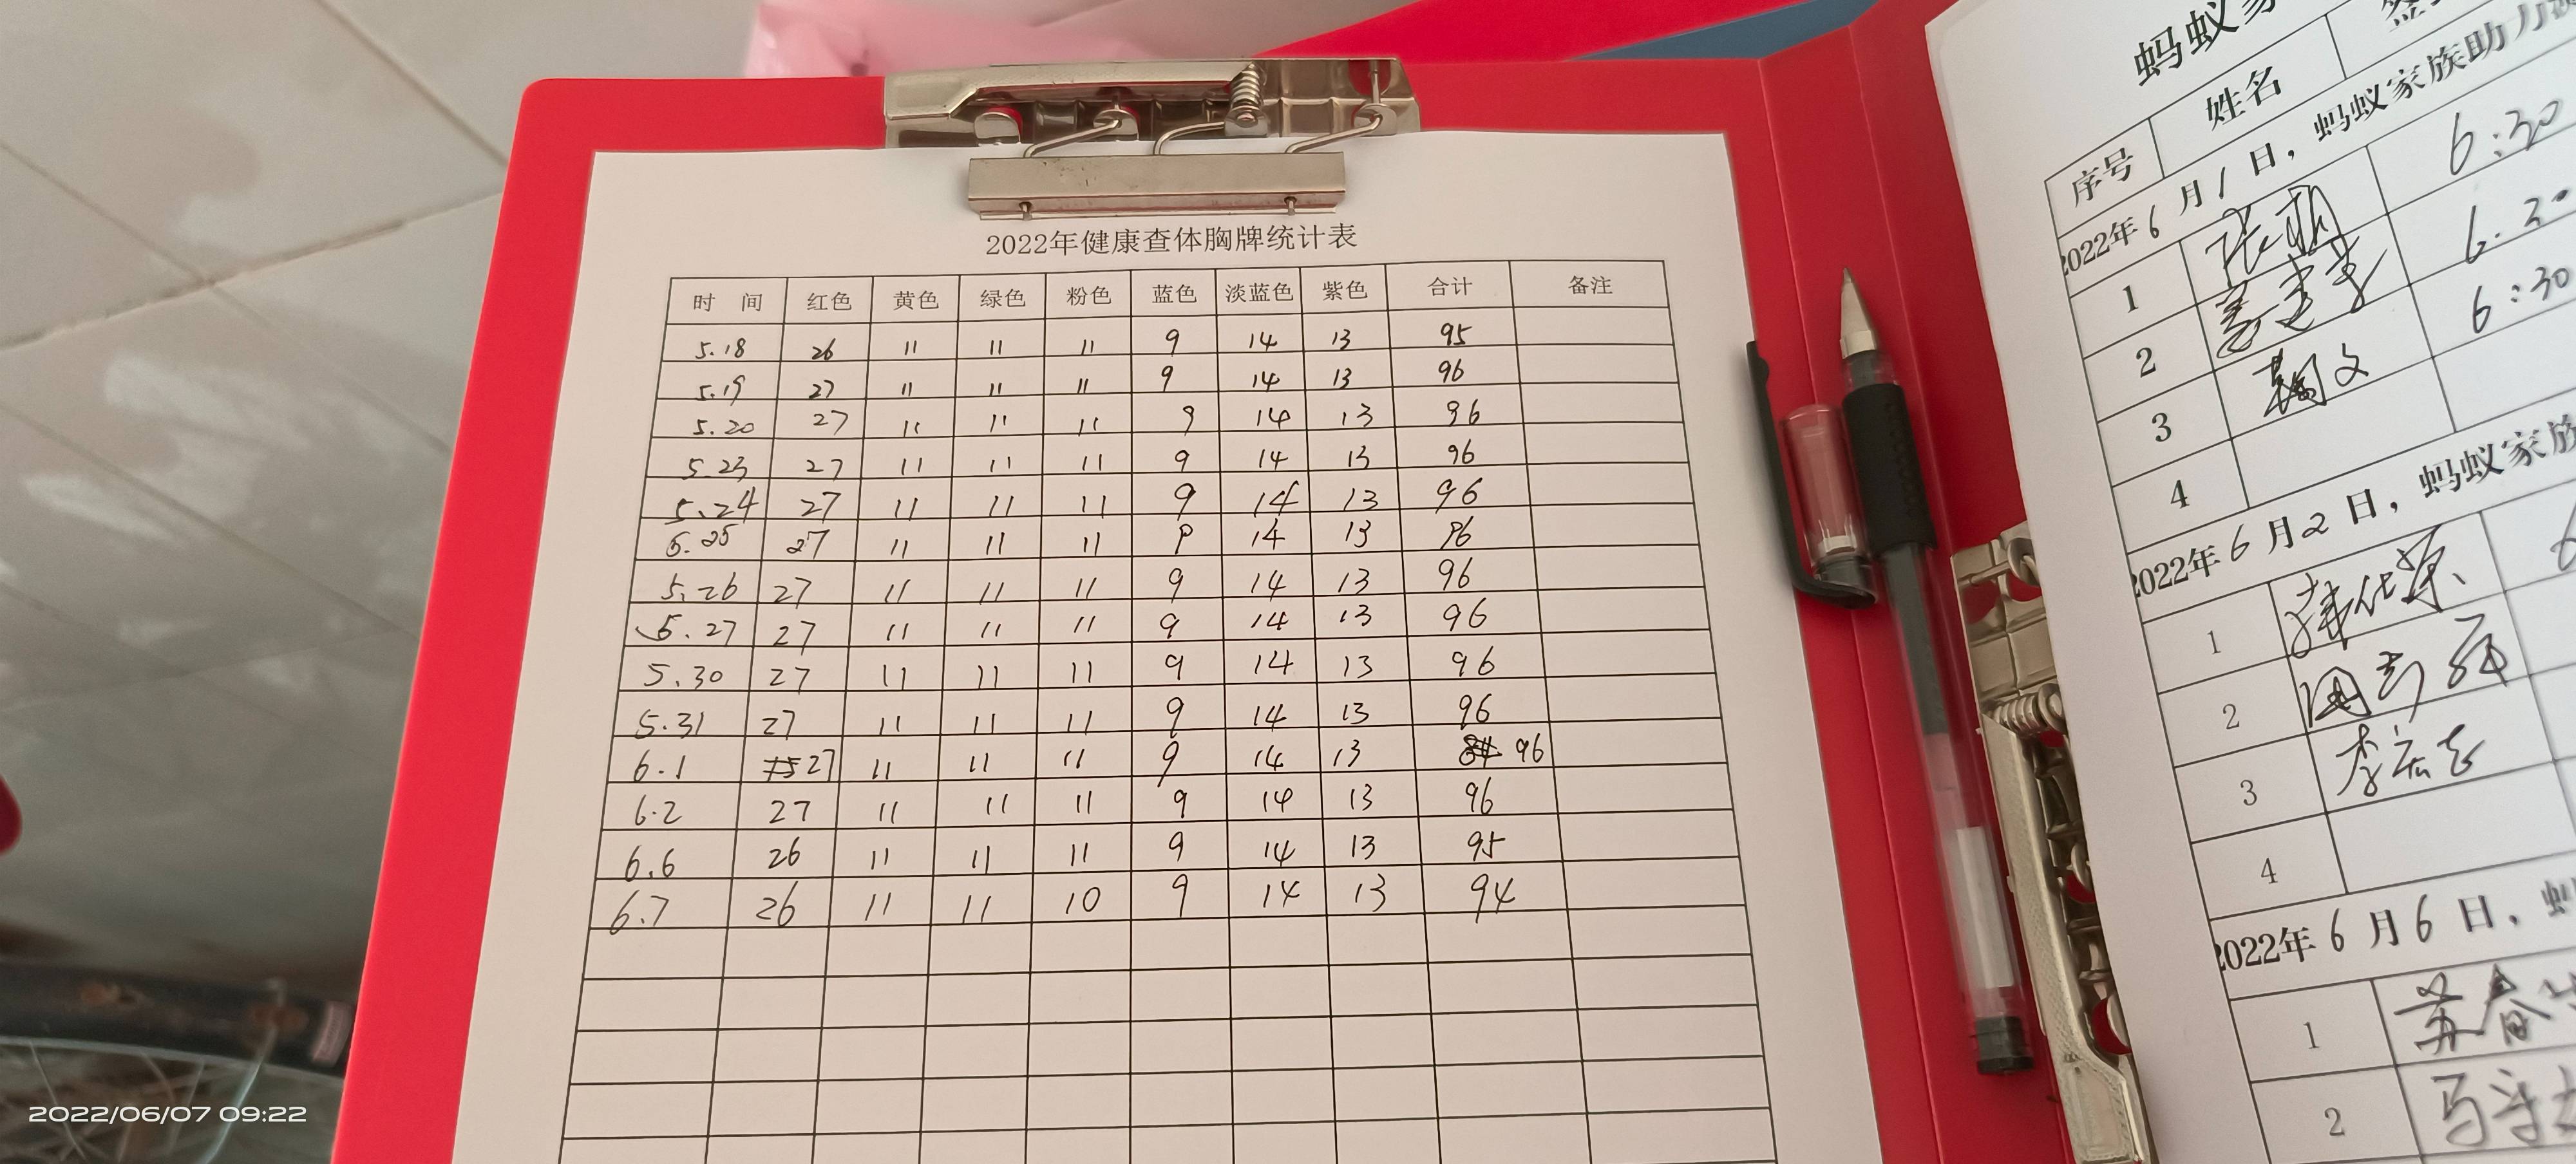 2022年健康查体胸牌统计表
时 间 红色 黄色 绿色 粉色 蓝色 淡蓝色 紫色 合计 备注
5.18 26 11 11 11 9 14 13 95
5.19 27 11 11 11 9 14 13 96
5.20 27 11 11 11 9 14 13 96
5.23 27 11 11 11 9 14 13 96
5.24 27 11 11 11 9 14 13 96
5.25 27 11 11 11 9 14 13 96
5.26 27 11 11 11 9 14 13 96
5.27 27 11 11 11 9 14 13 96
5.30 27 11 11 11 9 14 13 96
5.31 27 11 11 11 9 14 13 96
6.1 27 11 11 11 9 14 13 96
6.2 27 11 11 11 9 14 13 96
6.6 26 11 11 11 9 14 13 95
6.7 26 11 11 10 9 14 13 94
蚂蚁家
序号 姓名
2022年6月1日，蚂蚁家族助力
1 6:30
2 6.30
3 6:30
4
2022年6月2日，蚂蚁家族
1
2
3
4
2022年6月6日，
1
2
2022/06/07 09:22